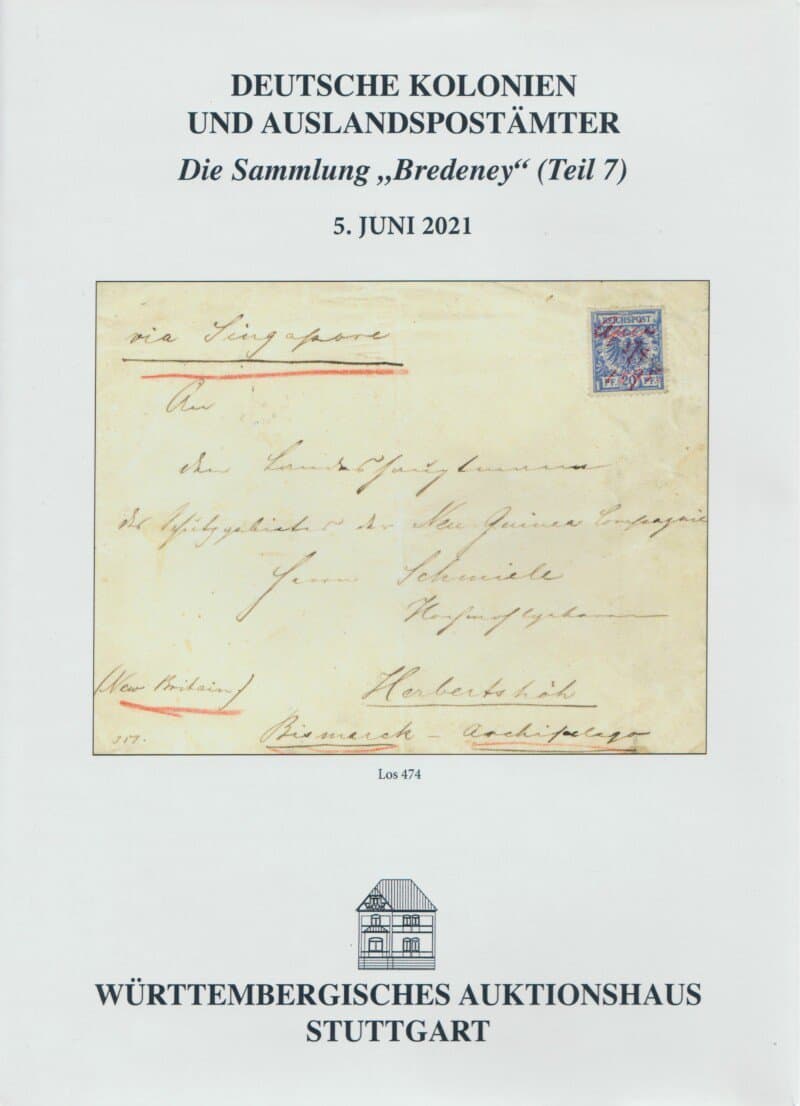 DEUTSCHE KOLONIEN
UND AUSLANDSPOSTÄMTER
Die Sammlung „Bredeney“ (Teil 7)
5. JUNI 2021
via Singapore
REICHSPOST
PF. 20 PF.
An
den Landeshauptmann
des Schutzgebietes der New Guinea Compagnie
Herrn Schmiele
Hochwohlgeboren
(New Britain)
Herbertshöh
Bismarck - Archipelago
Los 474
WÜRTTEMBERGISCHES AUKTIONSHAUS
STUTTGART